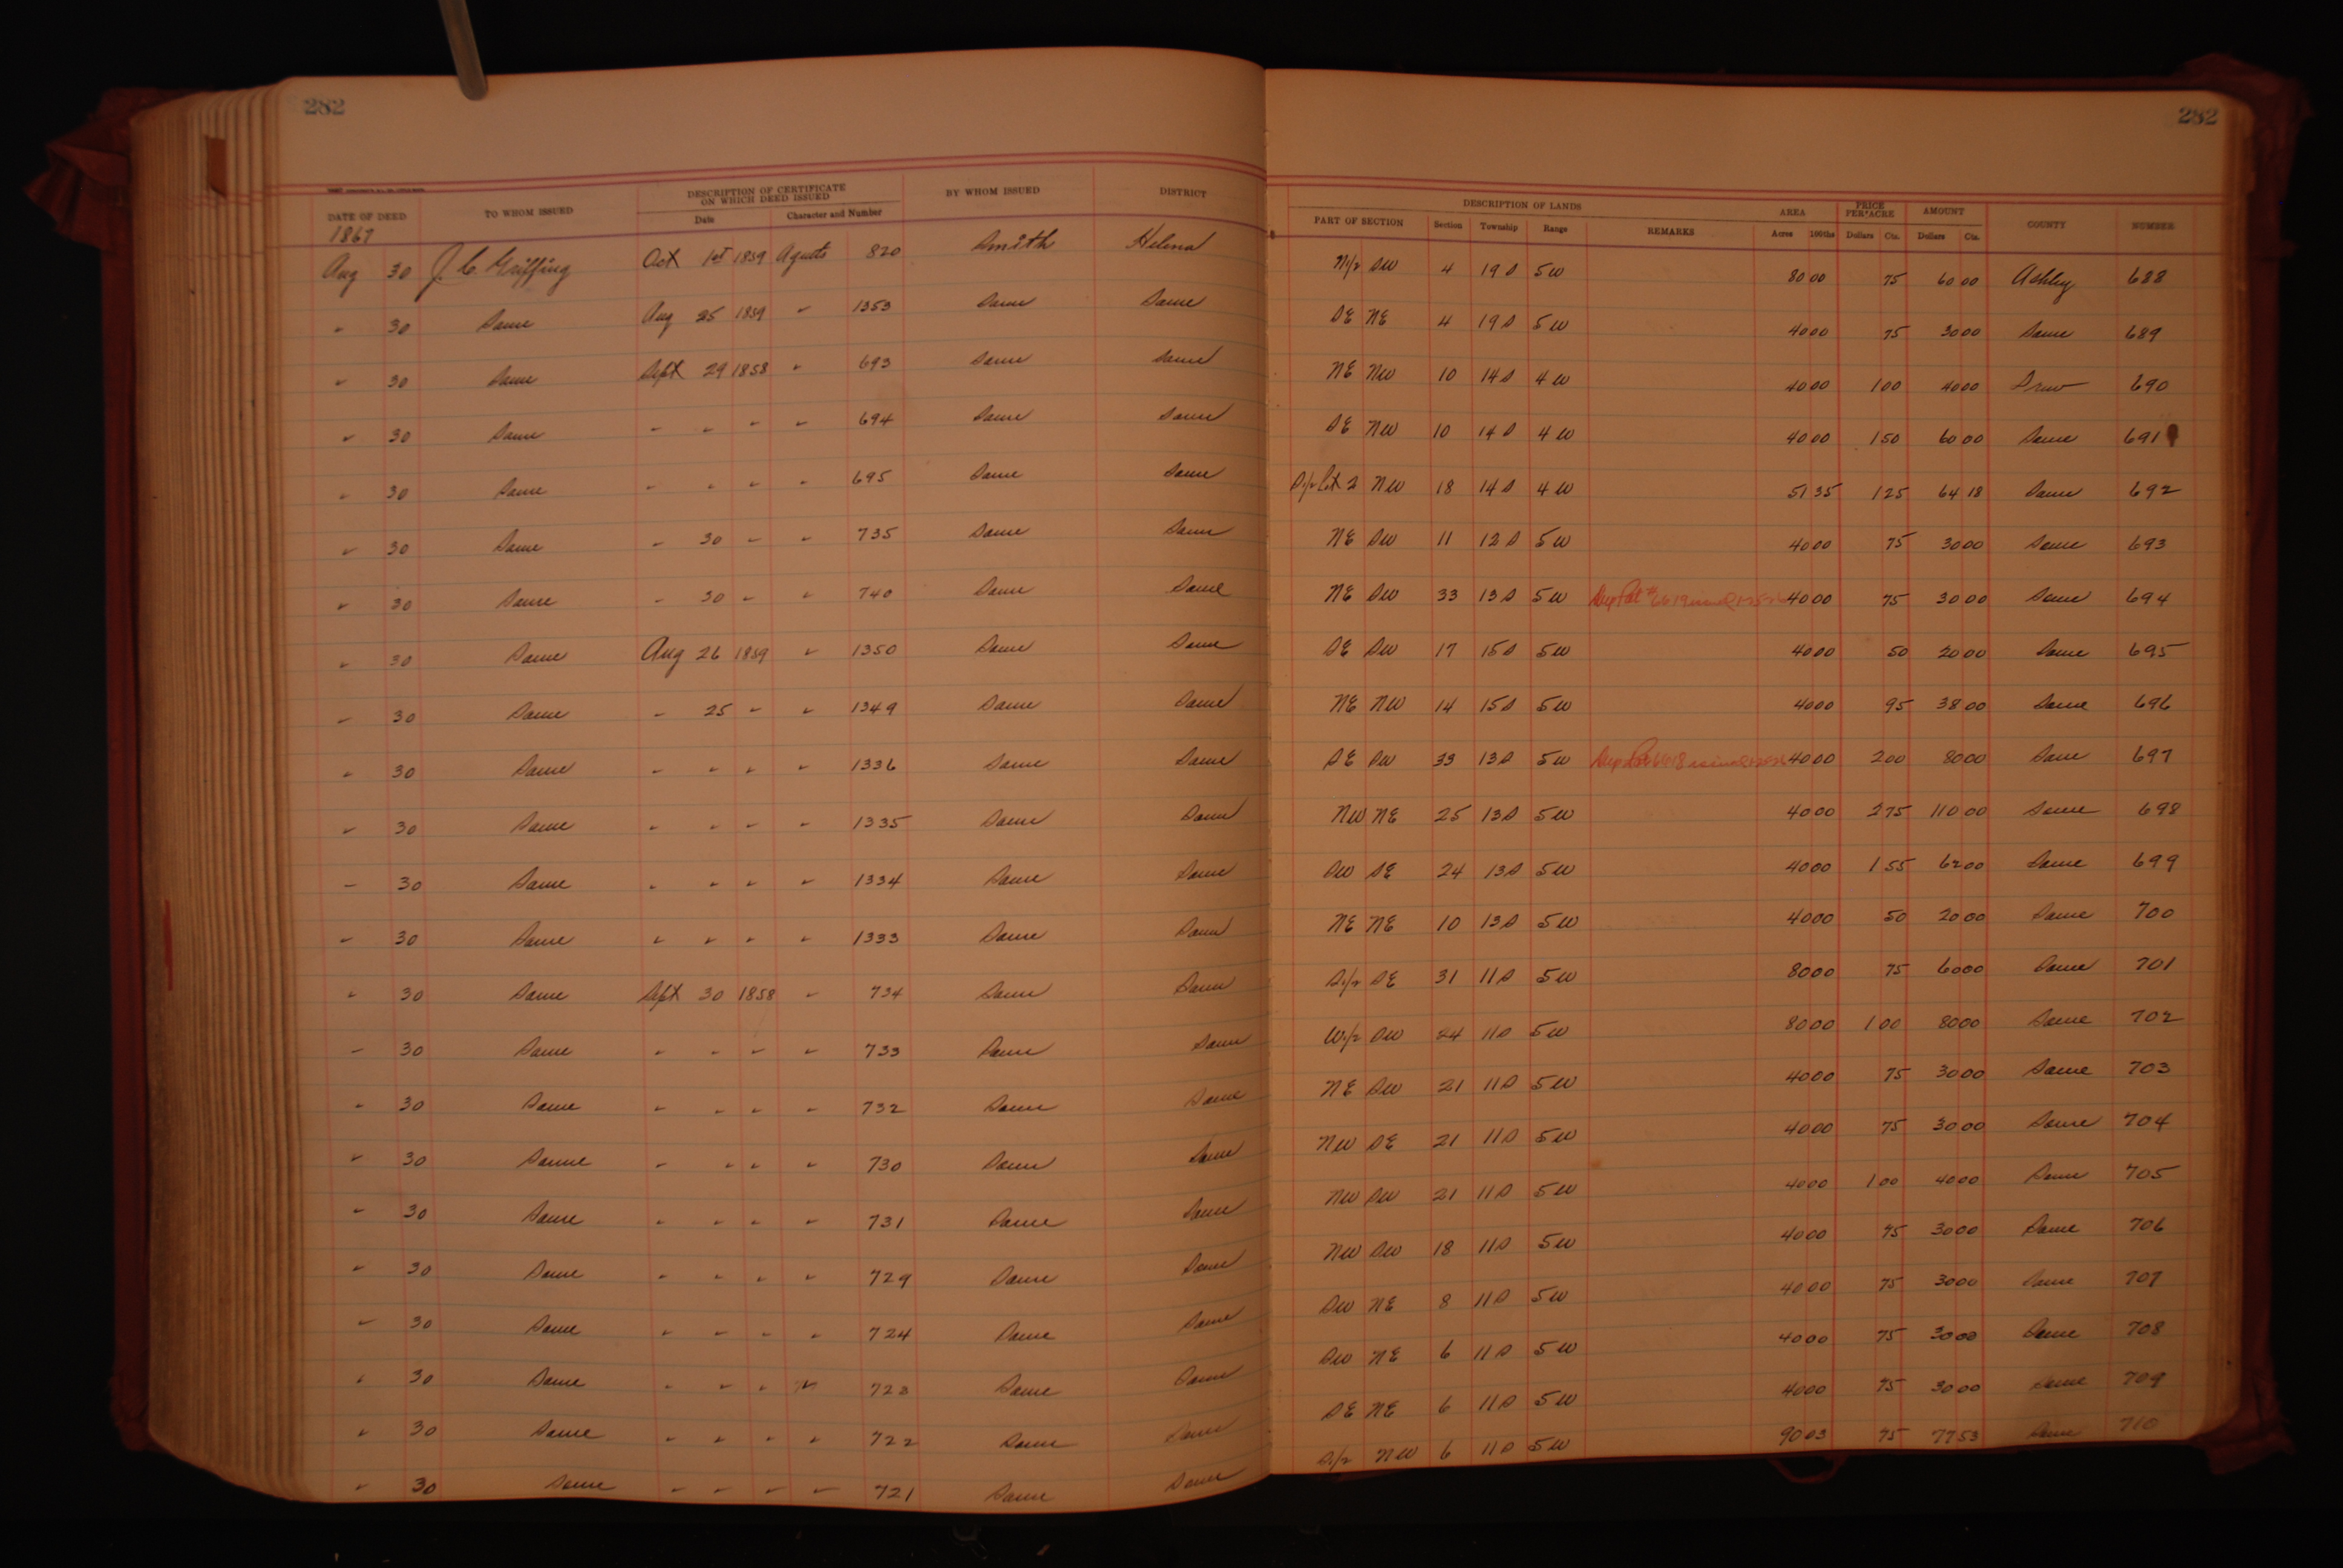 282 282
DESCRIPTION OF CERTIFICATE ON WHICH DEED ISSUED BY WHOM ISSUED DISTRICT DESCRIPTION OF LANDS AREA PRICE PER ACRE AMOUNT COUNTY NUMBER
DATE OF DEED TO WHOM ISSUED Date Character and Number PART OF SECTION Section Township Range REMARKS Acres 100ths Dollars Cts. Dollars Cts.
1867
Aug 30 J. C. Griffing Oct 1st 1859 Agents 820 Smith Helena N1/2 SW 4 19 S 5 W 80 00 75 60 00 Ashley 688
" 30 Same Aug 25 1859 " 1353 Same Same SE NE 4 19 S 5 W 40 00 75 30 00 Same 689
" 30 Same Sept 29 1858 " 693 Same Same NE NW 10 14 S 4 W 40 00 1 00 40 00 Drew 690
" 30 Same " " " " 694 Same Same SE NW 10 14 S 4 W 40 00 1 50 60 00 Same 691
" 30 Same " " " " 695 Same Same S1/2 Lot 2 NW 18 14 S 4 W 51 35 1 25 64 18 Same 692
" 30 Same " 30 " " 735 Same Same NE SW 11 12 S 5 W 40 00 75 30 00 Same 693
" 30 Same " 30 " " 740 Same Same NE SW 33 13 S 5 W 40 00 75 30 00 Same 694
" 30 Same Aug 26 1859 " 1350 Same Same SE SW 17 15 S 5 W 40 00 50 20 00 Same 695
" 30 Same " 25 " " 1349 Same Same NE NW 14 15 S 5 W 40 00 95 38 00 Same 696
" 30 Same " " " " 1336 Same Same SE SW 33 13 S 5 W 40 00 2 00 80 00 Same 697
" 30 Same " " " " 1335 Same Same NW NE 25 13 S 5 W 40 00 2 75 110 00 Same 698
" 30 Same " " " " 1334 Same Same SW SE 24 13 S 5 W 40 00 1 55 62 00 Same 699
" 30 Same " " " " 1333 Same Same NE NE 10 13 S 5 W 40 00 50 20 00 Same 700
" 30 Same Sept 30 1858 " 734 Same Same S1/2 SE 31 11 S 5 W 80 00 75 60 00 Same 701
" 30 Same " " " " 733 Same Same W1/2 SW 24 11 S 5 W 80 00 1 00 80 00 Same 702
" 30 Same " " " " 732 Same Same NE SW 21 11 S 5 W 40 00 75 30 00 Same 703
" 30 Same " " " " 730 Same Same NW SE 21 11 S 5 W 40 00 75 30 00 Same 704
" 30 Same " " " " 731 Same Same NW SW 21 11 S 5 W 40 00 1 00 40 00 Same 705
" 30 Same " " " " 729 Same Same NW SW 18 11 S 5 W 40 00 75 30 00 Same 706
" 30 Same " " " " 724 Same Same SW NE 8 11 S 5 W 40 00 75 30 00 Same 707
" 30 Same " " " " 723 Same Same SW NE 6 11 S 5 W 40 00 75 30 00 Same 708
" 30 Same " " " " 722 Same Same SE NE 6 11 S 5 W 40 00 75 30 00 Same 709
" 30 Same " " " " 721 Same Same S1/2 NW 6 11 S 5 W 90 03 75 77 53 Same 710